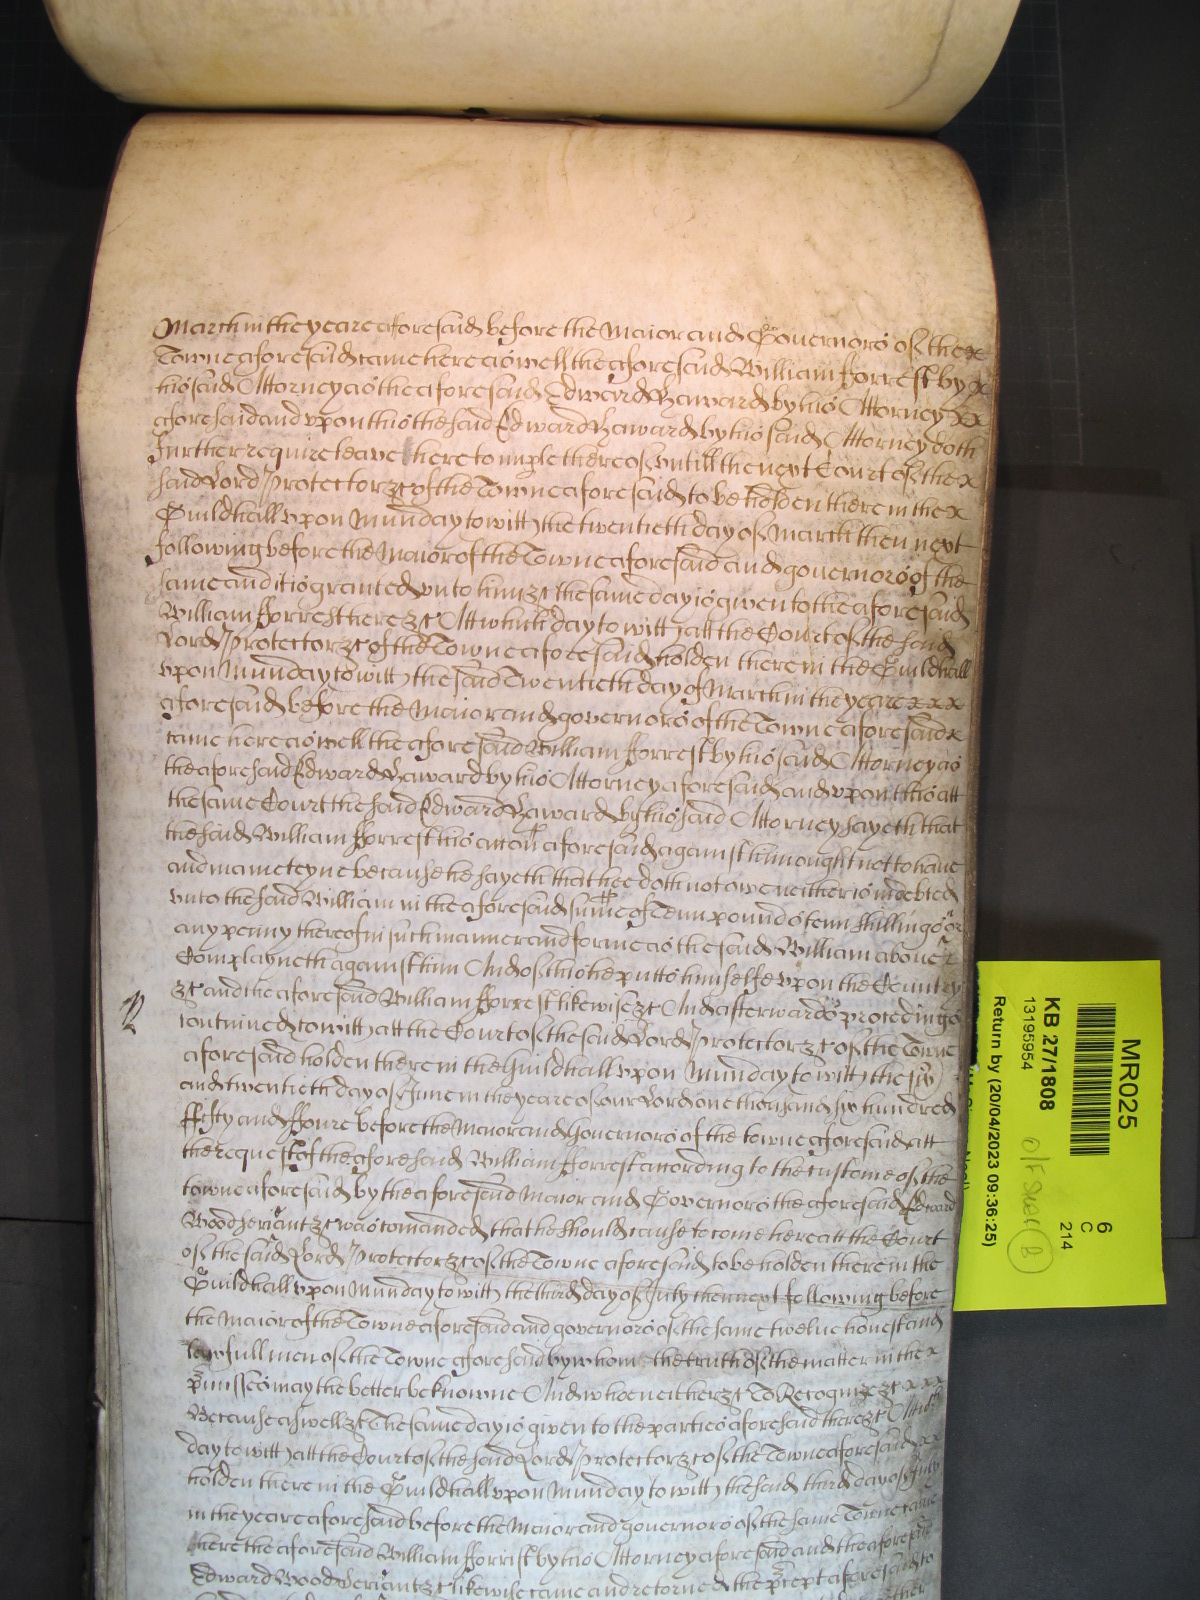 March in the yeare aforesaid before the Maior and Governors of the x
Towne aforesaid came here aswell the aforesaid William fforrest by x
his said Attorney as the aforesaid Edward Haward by his Attorney xx
aforesaid and upon this the said Edward Haward by his said Attorney doth
further require leave here to imple thereof untill the next Court of the x
said Lord Protector &c of the Towne aforesaid to be holden there in the x
Guildhall upon Munday to witt the twentieth day of March then next
following before the Maior of the Towne aforesaid and governors of the
same and it is granted unto him &c the same day is given to the aforesaid
William fforrest here &c Att which day to witt att the Court of the said
Lord Protector &c of the Towne aforesaid holden there in the Guildhall
upon Munday to witt the said Twentieth day of March in the yeare xxx
aforesaid before the Maior and governors of the Towne aforesaid x
came here aswell the aforesaid William fforrest by his said Attorney as
the aforesaid Edward Haward by his Attorney aforesaid and upon this att
the same Court the said Edward Haward by his said Attorney sayeth that
the said William fforrest his accon aforesaid against him ought not to have
and mainteyne because he sayeth that hee doth not owe neither is indebted
unto the said William in the aforesaid summe of Tenn pounds tenn shillings or
any penny thereof in such manner and forme as the said William above
Complayneth against him And of this he putts himselfe upon the Country
&c and the aforesaid William fforrest likewise &c And afterwards proceedings
continued to witt att the Court of the said Lord Protector &c of the Towne
aforesaid holden there in the Guildhall upon Munday to witt the six
and twentieth day of June in the yeare of our Lord one thousand six hundred
ffifty and ffoure before the Maior and Governors of the towne aforesaid att
the request of the aforesaid William fforrest according to the custome of the
towne aforesaid by the aforesaid Maior and Governors the aforesaid Edward
Wood seriant &c was comanded that he should cause to come here att the Court
of the said Lord Protector &c of the Towne aforesaid to be holden there in the
Guildhall upon Munday to witt the third day of July then next following before
the Maior of the Towne aforesaid and governors of the same twelve honest and
lawfull men of the Towne aforesaid by whom the truth of the matter in the x
pmisses may the better be knowne And who neither &c To Recognize &c xxx
Because aswell &c The same day is given to the parties aforesaid there &c Att which
day to witt att the Court of the said Lord Protector &c of the Towne aforesaid xx
holden there in the Guildhall upon Munday to witt the said third day of July
in the yeare aforesaid before the Maior and governors of the same Towne came
here the aforesaid William fforrest by his Attorney aforesaid and the aforesaid
Edward Wood Seriant &c likewise came and retorned the pcept aforesaid to
MR025
6
C
214
KB 27/1808
13195954
Return by (20/04/2023 09:36:25)